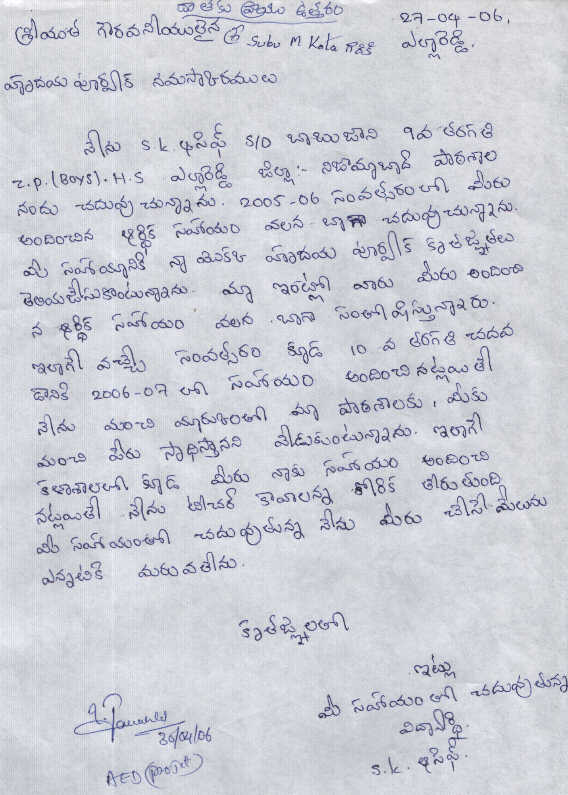 దాతకు వ్రాయు ఉత్తరం
27-04-06,
శ్రీయుత గౌరవనీయులైన శ్రీ Subu M Kota గారికి
ఎల్లారెడ్డి.
హృదయ పూర్వక నమస్కారములు
నేను S.K. ఆసిఫ్ S/O బాబుజాని 9వ తరగతి
Z.P.(BOYS).H.S ఎల్లారెడ్డి జిల్లా:- నిజామాబాద్ పాఠశాల
నందు చదువు చున్నాను. 2005-06 సంవత్సరంలో మీరు
అందించిన ఆర్థిక సహాయం వలన బాగా చదువుచున్నాను.
మీ సహాయానికి నా యొక్క హృదయ పూర్వక కృతజ్ఞతలు
తెలియచేసుకొంటున్నాను. మా ఇంట్లో వారు మీరు అందించి
న ఆర్థిక సహాయం వలన బాగా సంతోషిస్తున్నారు.
ఇలాగే వచ్చే సంవత్సరం కూడ 10 వ తరగతి చదవ
డానికి 2006-07 లో సహాయం అందించి నట్లయితే
నేను మంచి మార్కులతో మా పాఠశాలకు, మీకు
మంచి పేరు సాధిస్తానని వేడుకుంటున్నాను. ఇలాగే
కళాశాలలో కూడ మీరు నాకు సహాయం అందించి
నట్లయితే నేను టీచర్ కావాలన్న కోరిక తీరుతుంది
మీ సహాయంతో చదువుతున్న నేను మీరు చేసే మేలును
ఎన్నటికి మరువలేను.
కృతజ్ఞలతో
ఇట్లు
మీ సహాయంతో చదువుతున్న
విద్యార్థి.
S.K. ఆసిఫ్.
30/04/06
AED (Project)